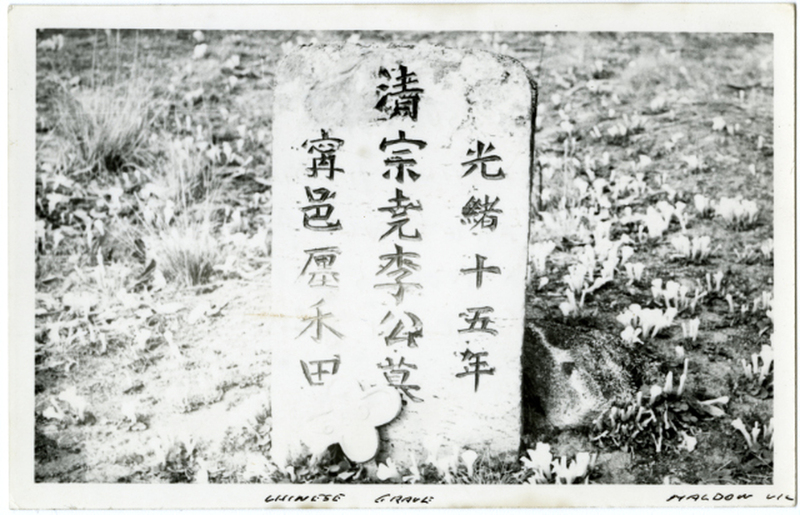 光緒十五年
清宗尭李公墓
甯邑禾田
CHINESE GRAVE
MALDON VIC